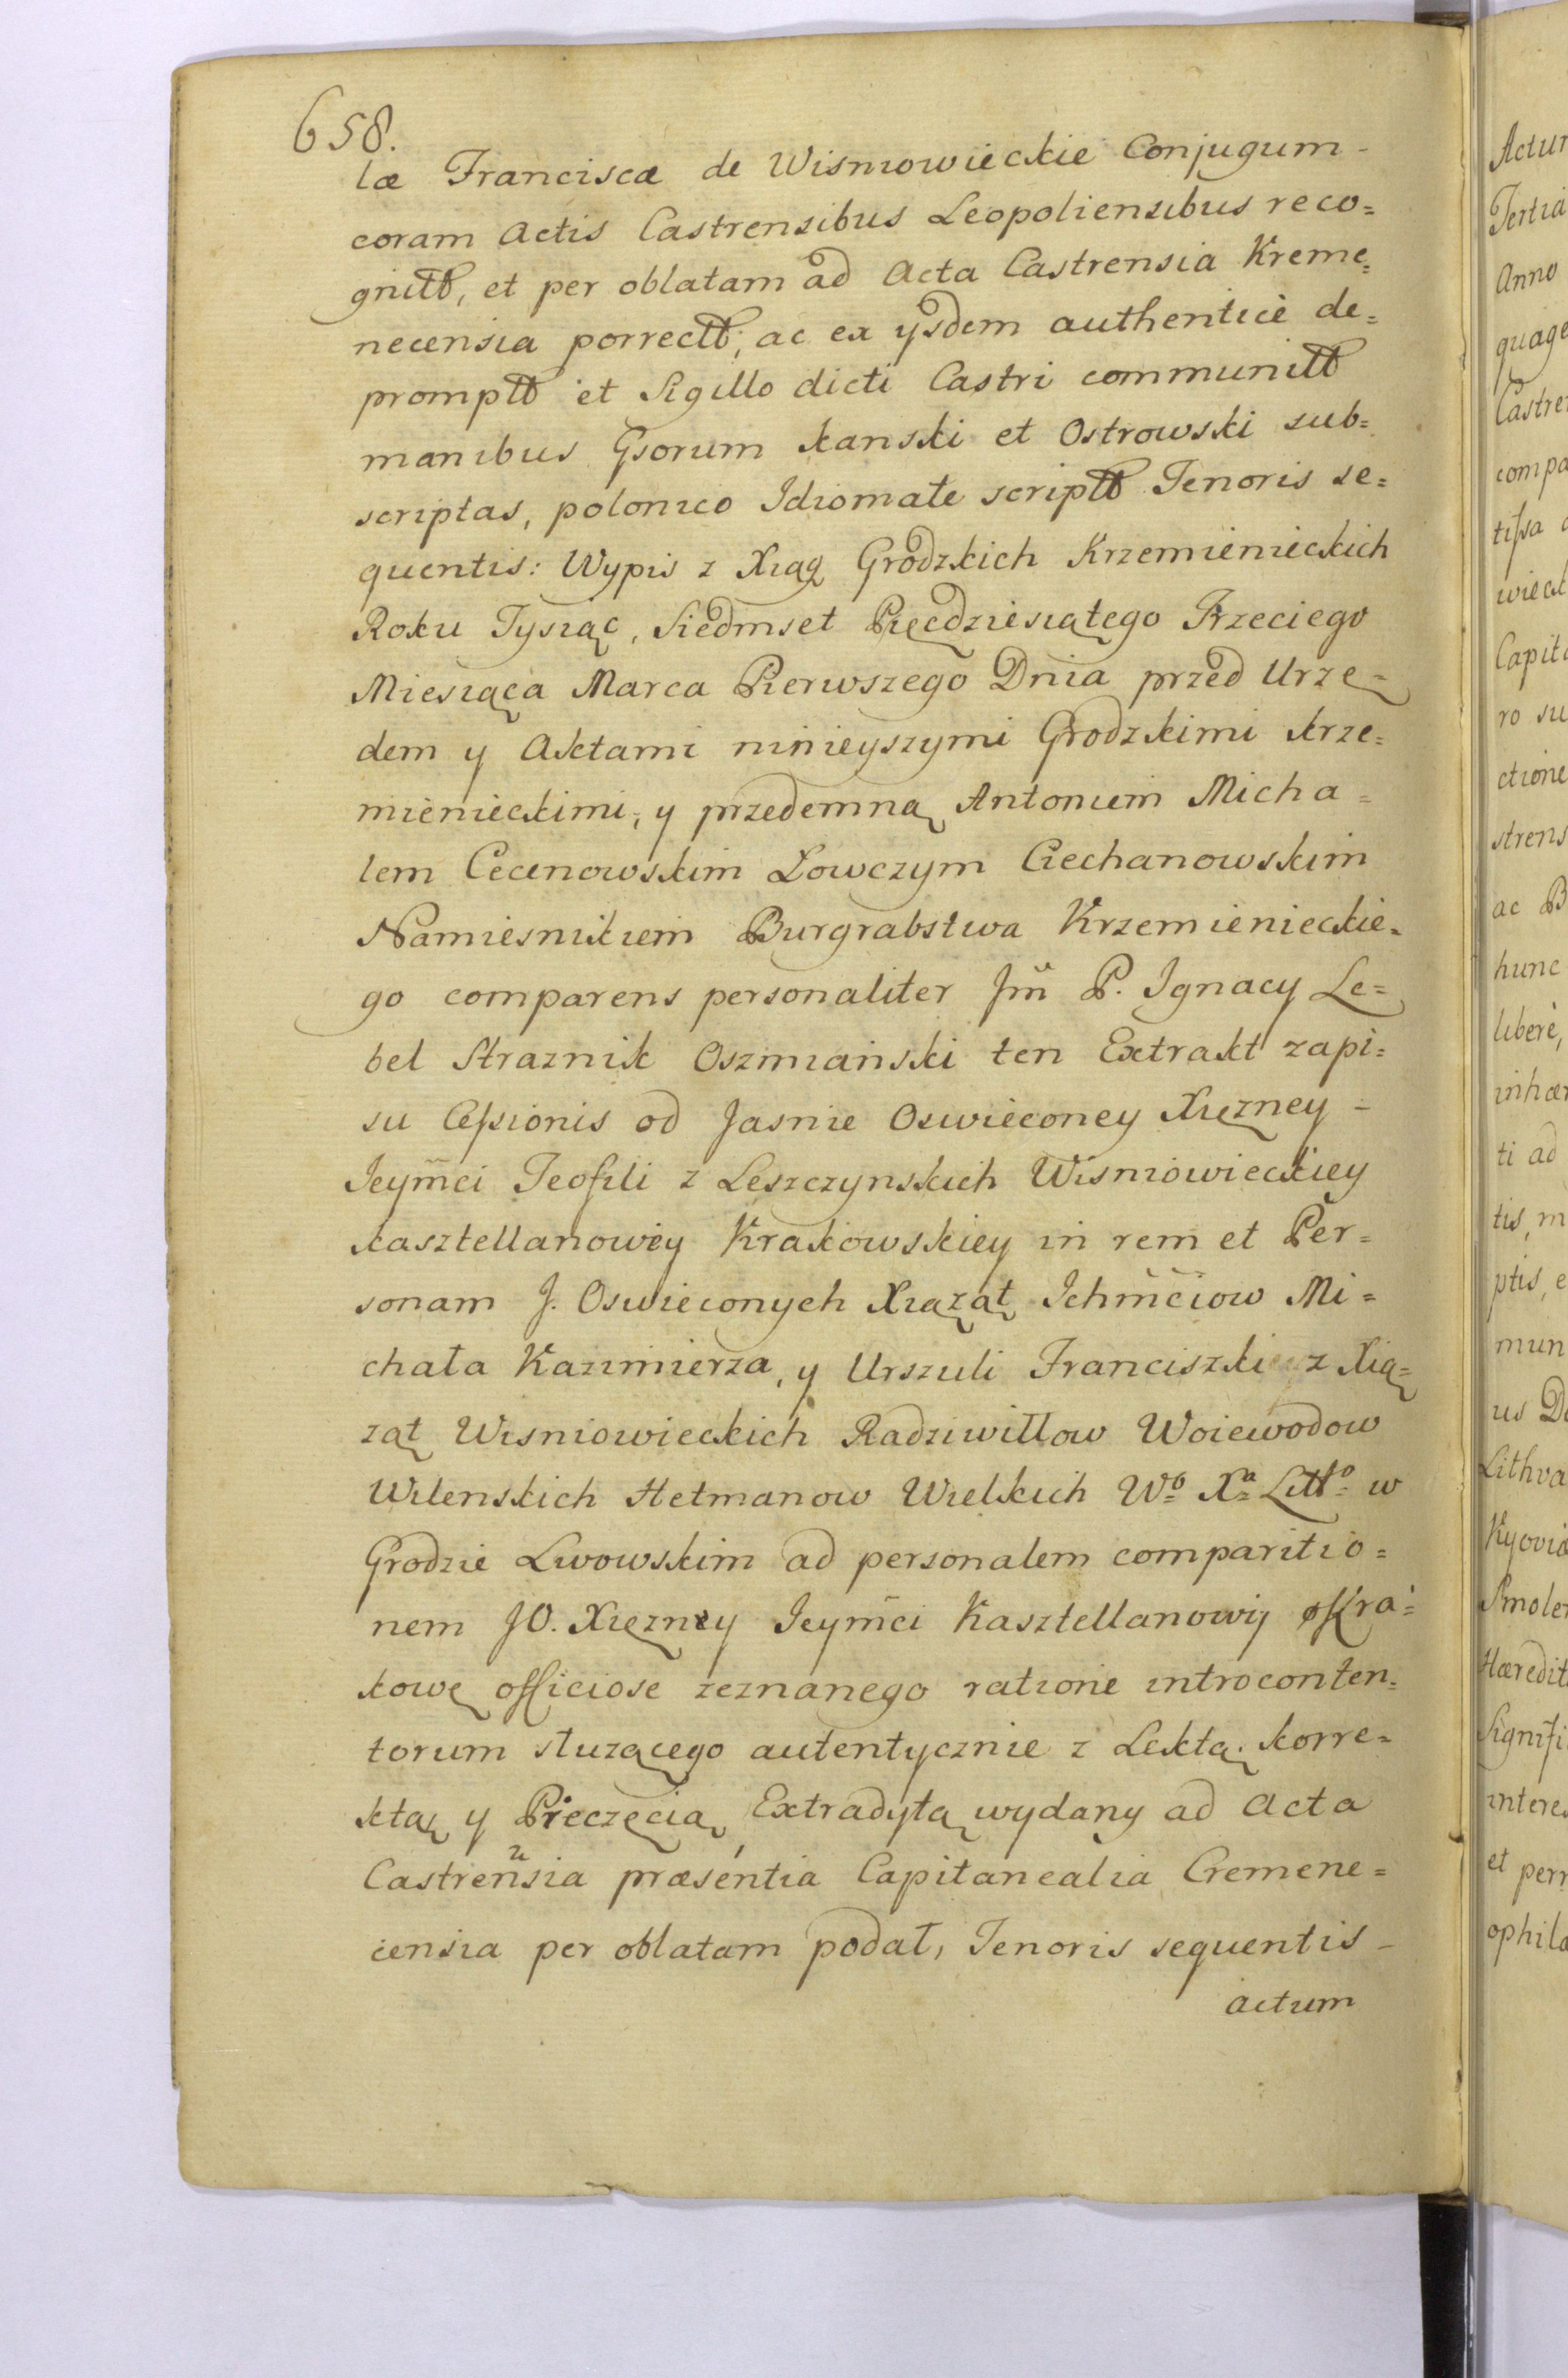 658.
læ Franciscæ de Wisniowieckie Conjugum -
coram Actis Castrensibus Leopoliensibus reco=
gnitt, et per oblatam ad Acta Castrensia Kreme=
necensia porrectt, ac ex ysdem authenticè de=
promptt et Sigillo dicti Castri communitt
manibus Gsorum Kanski et Ostrowski sub=
scriptas, polonico Idiomate scriptt Tenoris se=
quentis: Wypis z Xiąg Grodzkich Krzemienieckich
Roku Tysiąc, Siedmset Pięcdziesiątego Trzeciego
Miesiąca Marca Pierwszego Dnia przed Urzę=
dem y Aktami ninieyszymi Grodzkimi Krze=
mienieckimi, y przedemną Antonim Micha=
lem Cecenowskim Łowczym Ciechanowskim
Namiesnikiem Burgrabstwa Krzemienieckie=
go comparens personaliter Jm̃ P. Ignacy Le=
bel Straznik Oszmiański ten Extrakt zapi=
su Cessionis od Jasnie Oswieconey Xięzney -
Jeym̃ci Teofili z Leszczynskich Wisniowieckiey
Kasztellanowey Krakowskiey in rem et Per=
sonam J. Oswieconych Xiąząt Ichm̃ciow Mi=
chała Kazimierza, y Urszuli Franciszki z Xią=
ząt Wisniowieckich Radziwiłłow Woiewodow
Wilenskich Hetmanow Wielkich Wo Xa Litto w
Grodzie Lwowskim ad personalem comparitio=
nem JO. Xięzney Jeym̃ci Kasztellanowy Kra=
kowę officiose zeznanego ratione introconten=
torum słuzącego autentycznie z Lektą. Korre=
ktą y Pieczęcią, Extradytą wydany ad Acta
Castren̄sia præsentia Capitanealia Cremene=
censia per oblatam podał, Tenoris sequentis -
Actum
Actum
Tertia
Anno
quage
Castre
compa
tissa
wieck
Capita
ro su
ctione
strens
ac B
hunc
liberè,
inhær
ti ad
tis, m
ptis, e
mun
us D
Lithva
Kyovia
Smole
Hæredit
Signifi
intere
et perr
ophila